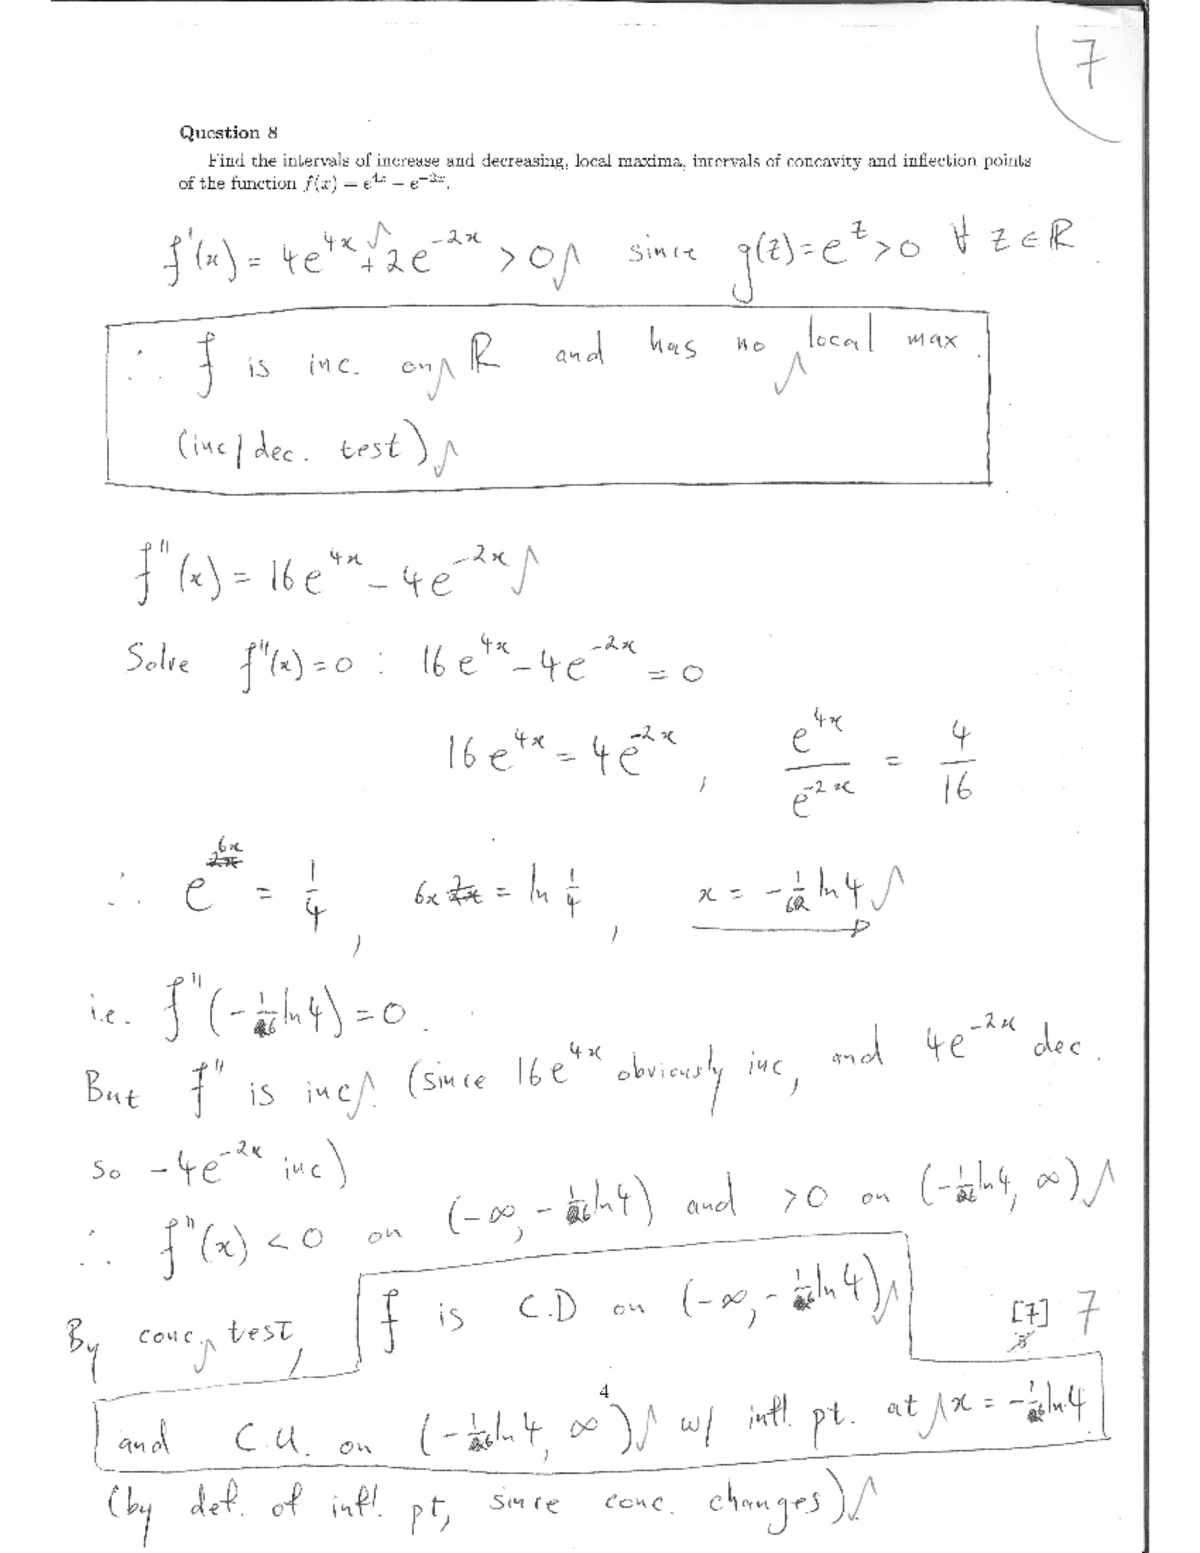 7
Question 8
Find the intervals of increase and decreasing, local maxima, intervals of concavity and inflection points
of the function f(x) = e^{4x} − e^{−2x}.
f'(x) = 4e^{4x} + 2e^{-2x} > 0 since g(z) = e^z > 0 ∀ z ∈ ℝ
∴ f is inc. on ℝ and has no local max.
(inc/dec. test)
f''(x) = 16e^{4x} - 4e^{-2x}
Solve f''(x) = 0 : 16e^{4x} - 4e^{-2x} = 0
16e^{4x} = 4e^{-2x}, e^{4x}/e^{-2x} = 4/16
∴ e^{6x} = 1/4, 6x = ln 1/4, x = -1/6 ln 4
i.e. f''(-1/6 ln 4) = 0.
But f'' is inc. (since 16e^{4x} obviously inc, and 4e^{-2x} dec.
so -4e^{-2x} inc)
∴ f''(x) < 0 on (-∞, -1/6 ln 4) and > 0 on (-1/6 ln 4, ∞)
By conc. test, f is C.D on (-∞, -1/6 ln 4)
[7] 7
4
and C.U. on (-1/6 ln 4, ∞) w/ infl. pt. at x = -1/6 ln 4
(by def. of infl. pt, since conc. changes).